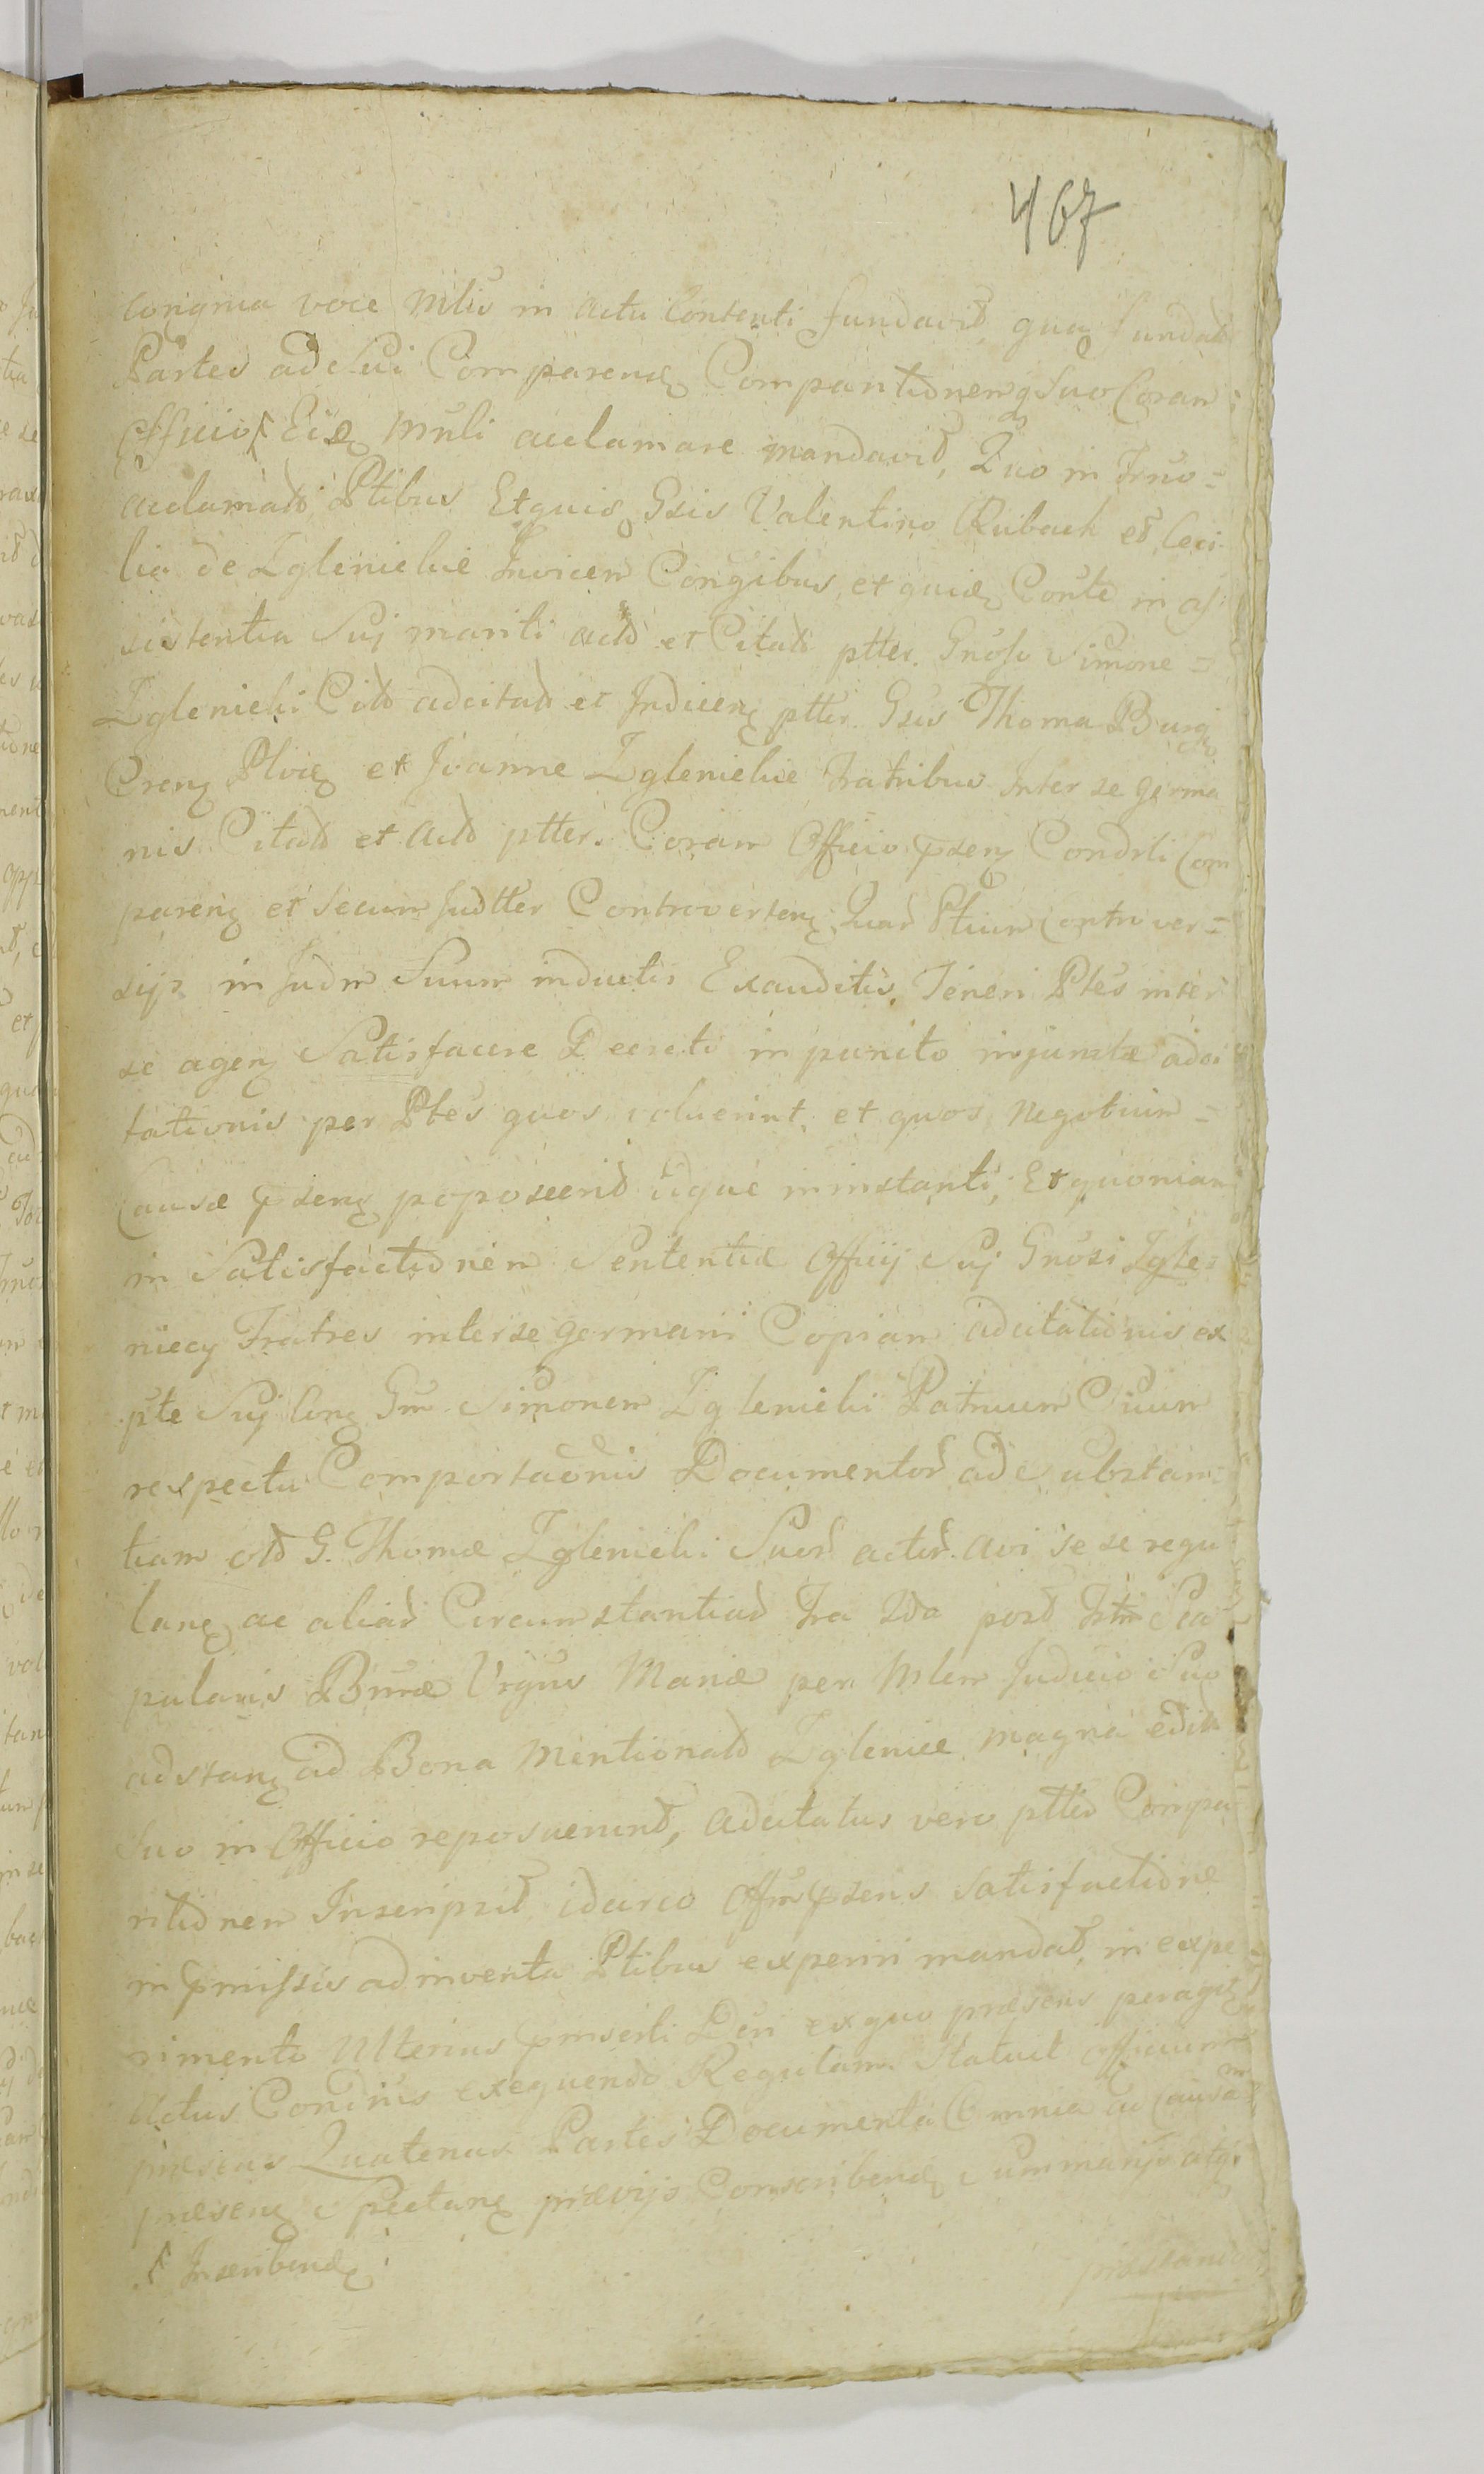 467
congrua voce Mlis in actu Contenti fundavit, qua fundata
Partes ad sui Comparend Comparitionemq suo Coram
Officio Eisd mnli acclamare mandavit, Quo in Trno=
acclamatis Ptibus Etquis Gsis Valentino Rubach et Ceci-
lia de Zglenickie Invicem Congibus, et quide Conte in as
sistentia Suj mariti actis et Citatis ptter. Gnoso Simone=
Zglenicki Cito adcitato et Indicen ptter Gsis Thoma Burg
Cren Ploc et Joanne Zglenickie Fratribus Inter se germa
nis Citatis et actis ptter. Coram Officio psen Condrli Com
paren et secum Judtter Controverten, Quar Ptium Controver=
sijs in Judm Suum inductis Exauditis, Teneri Ptes inter
se agen Satisfacere Decreti in puncto injunctæ adci
tationis per Ptes quos voluerint, et quos Negotium=
Causæ psens poposcerit idque in instanti, Et quoniam
in Satisfactionem Sententiæ Officij Suj Gnosi Zgle=
niccy Fratres inter se germani Copiam adcitationis ex
pte Suj Con Gm Simonem Zglenicki Patruum Suum
respectu Comportaonis Documentor ad substan=
tiam olb G. Thomæ Zglenicki Suor actor. avi se se regu
lan ac aliar Circumstantiar Fra 2da post Fstm Sca
pularis Bmæ Virgnis Mariæ per Mlem Judicio Suo
adstan ad Bona Mentionato Zglenice magna edita
Suo in Officio reposuerunt, adcitatus vero ptter Compa
ritionem Inscripsit idcirco Offm psens satisfactione
in pmissis adinventa Ptibus experiri mandat, in expe
rimento Ulterius pinserti Dcri ex quo præsens peragit
Actus Condnis exequendo Regulam Statuit officium
præsens Quatenus Partes Documenta Omnia ad Causam
præsen Spectan prævijs Conscribend Summarijs atq
Inscribend
præstand